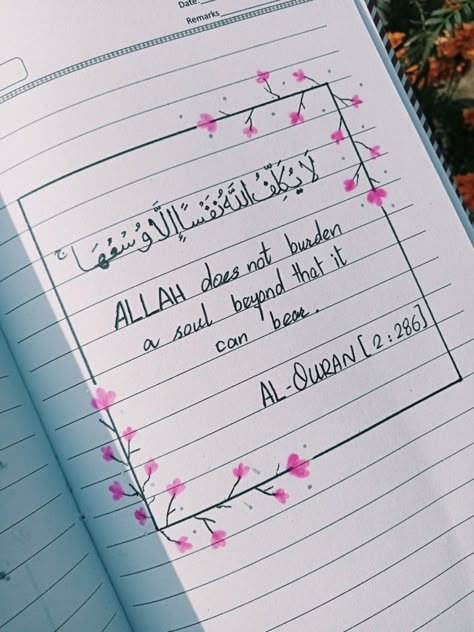 Date:
Remarks
لَا يُكَلِّفُ اللَّهُ نَفْسًا إِلَّا وُسْعَهَا ج
ALLAH does not burden
a soul beyond that it
can bear.
AL-QURAN [2:286]